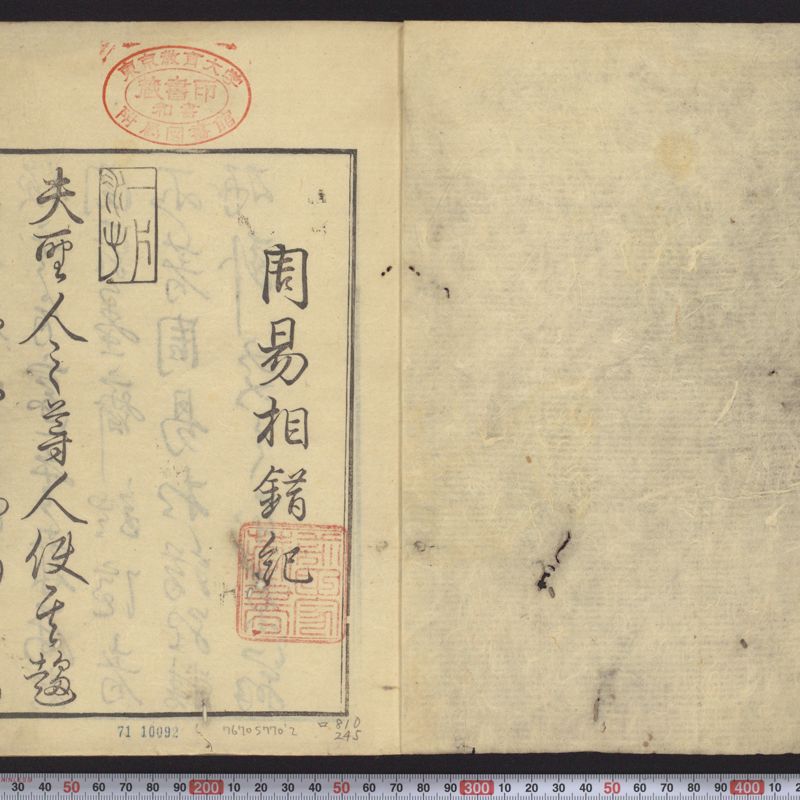 東京教育大学
蔵書印
和書
附属図書館
周易相錯紀
夫聖人之導人使其趨
71 10092
7670 5770.2
ロ810
245
30 40 50 60 70 80 90 200 10 20 30 40 50 60 70 80 90 300 10 20 30 40 50 60 70 80 90 400 10 2